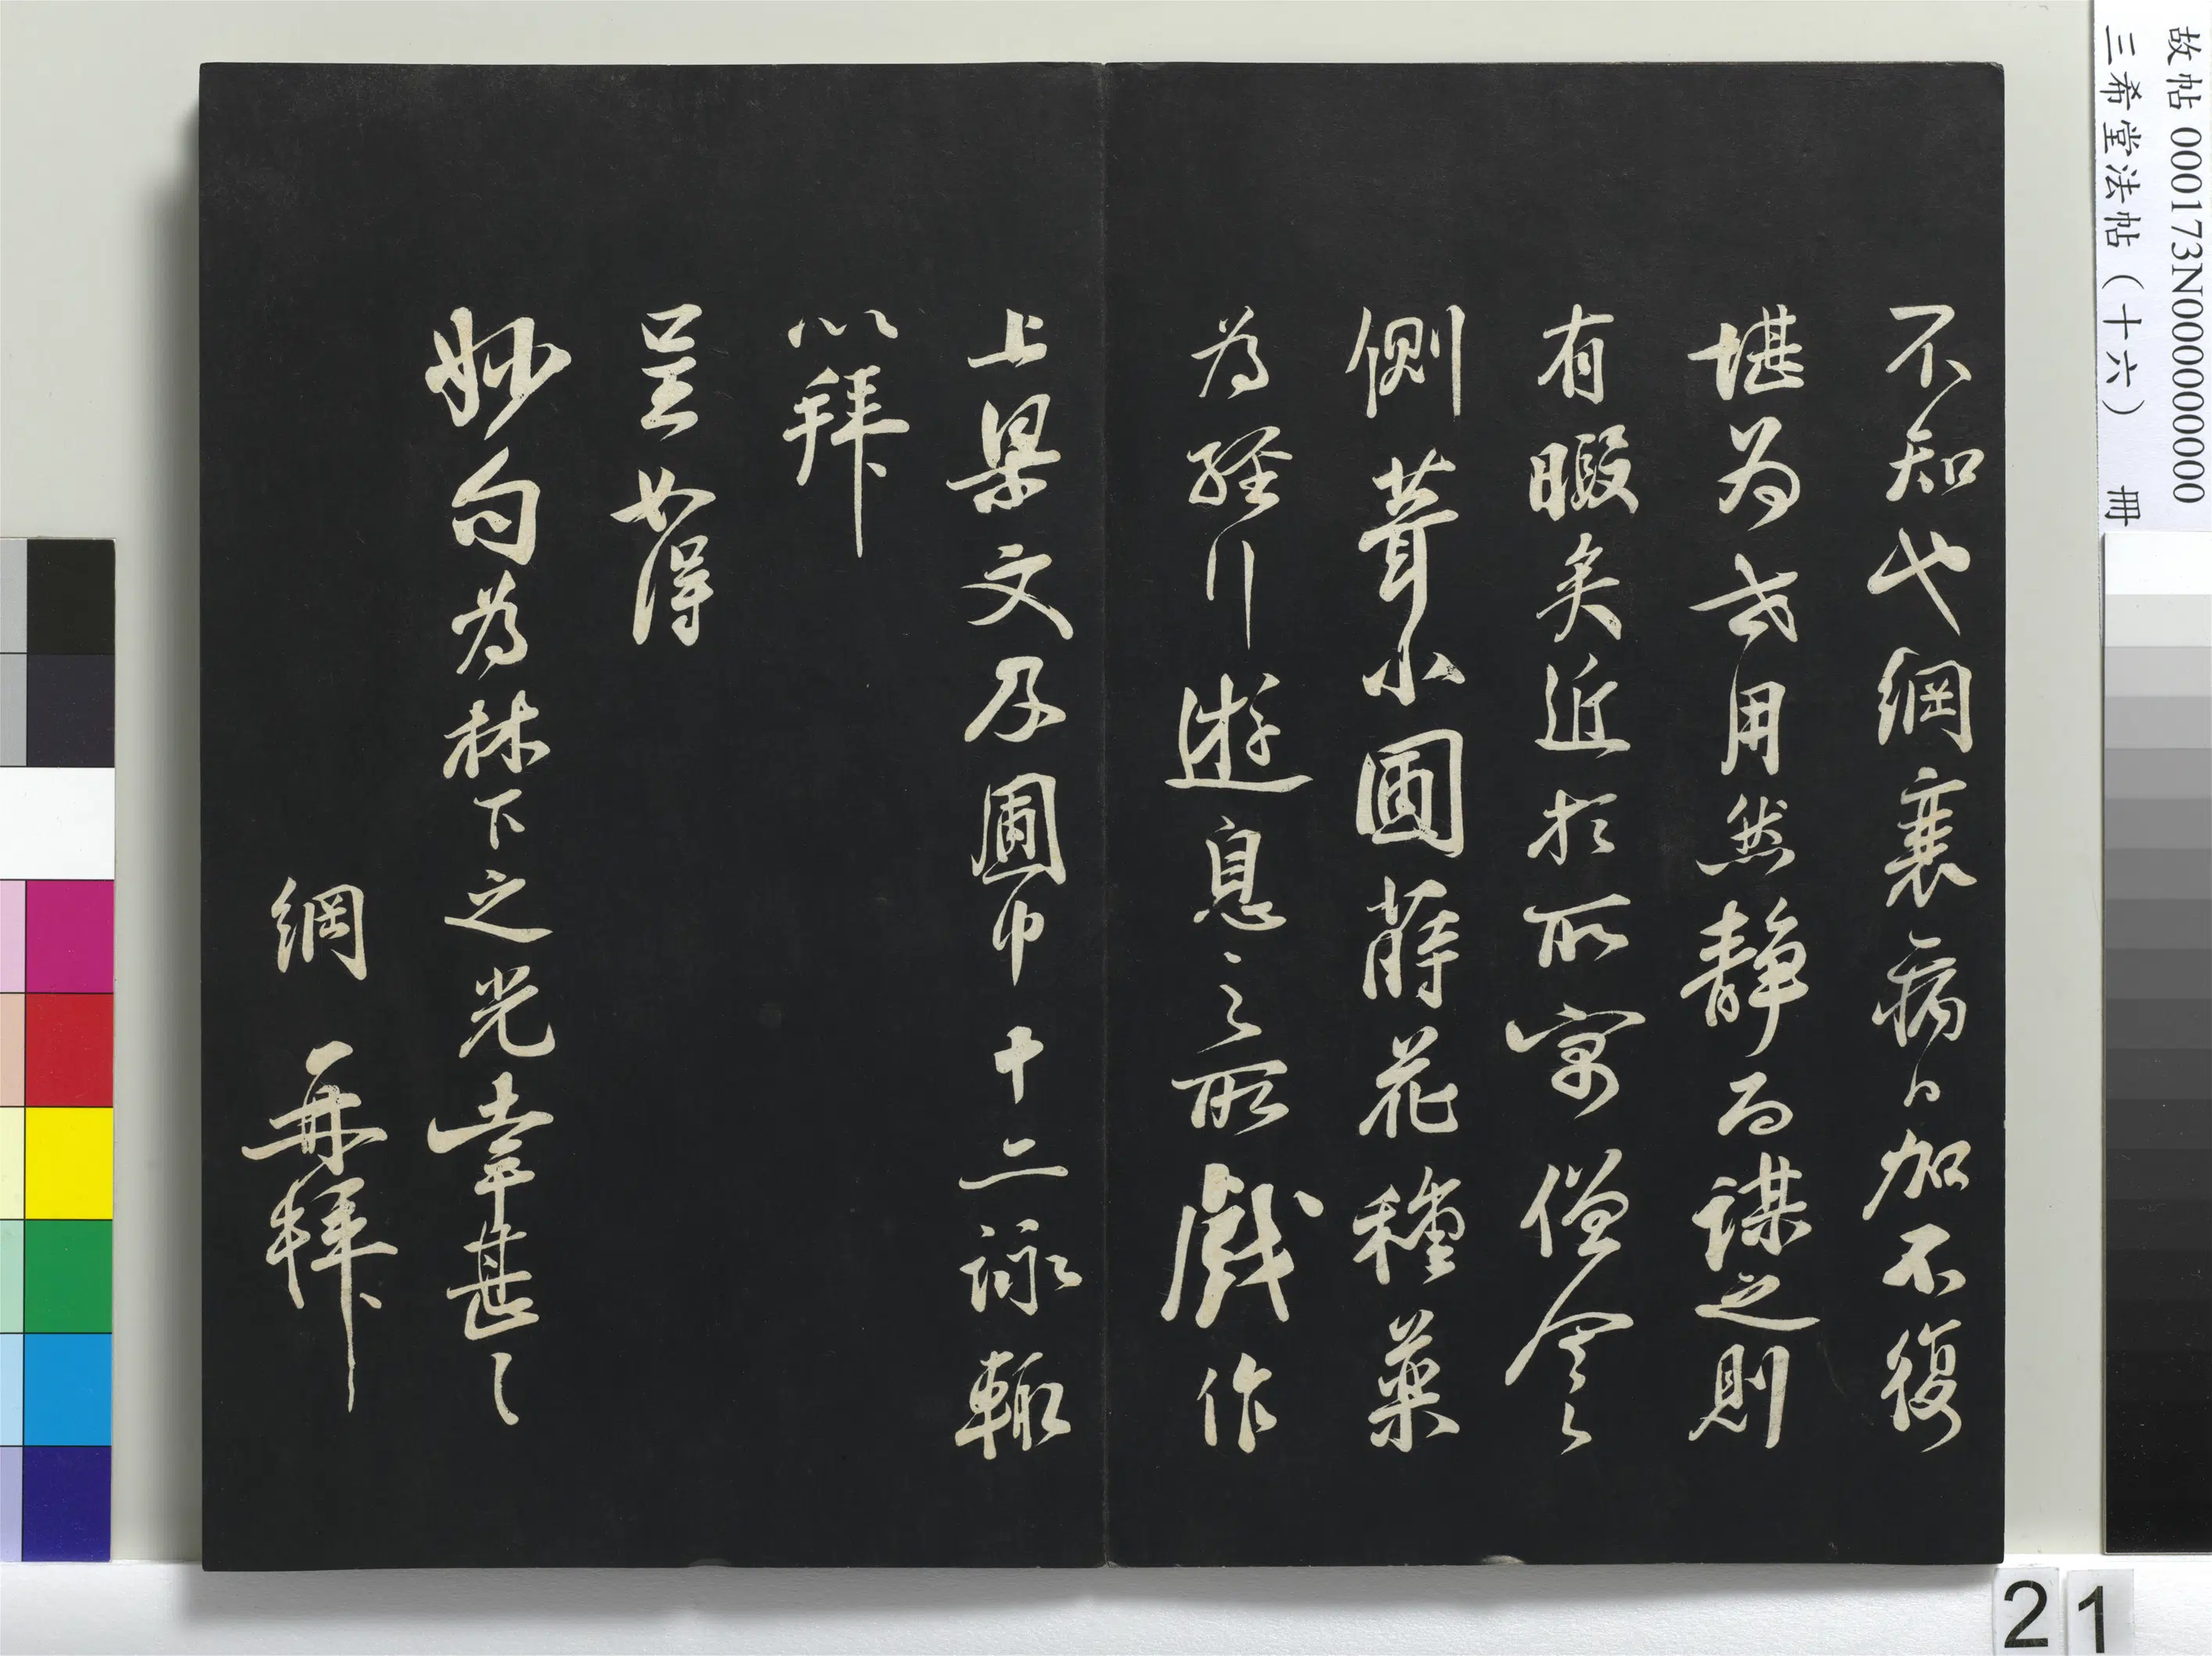 故帖 000173N000000000
三希堂法帖（十六） 冊
不知也綱衰病日加不復
堪為世用然靜而謀之則
有暇矣近於所寓僧舍之
側葺小圃蒔花種藥
為經行遊息之所戲作
上梁文及圃中十二詠輒
以拜
呈如得
妙句為林下之光幸甚之
綱 再拜
21